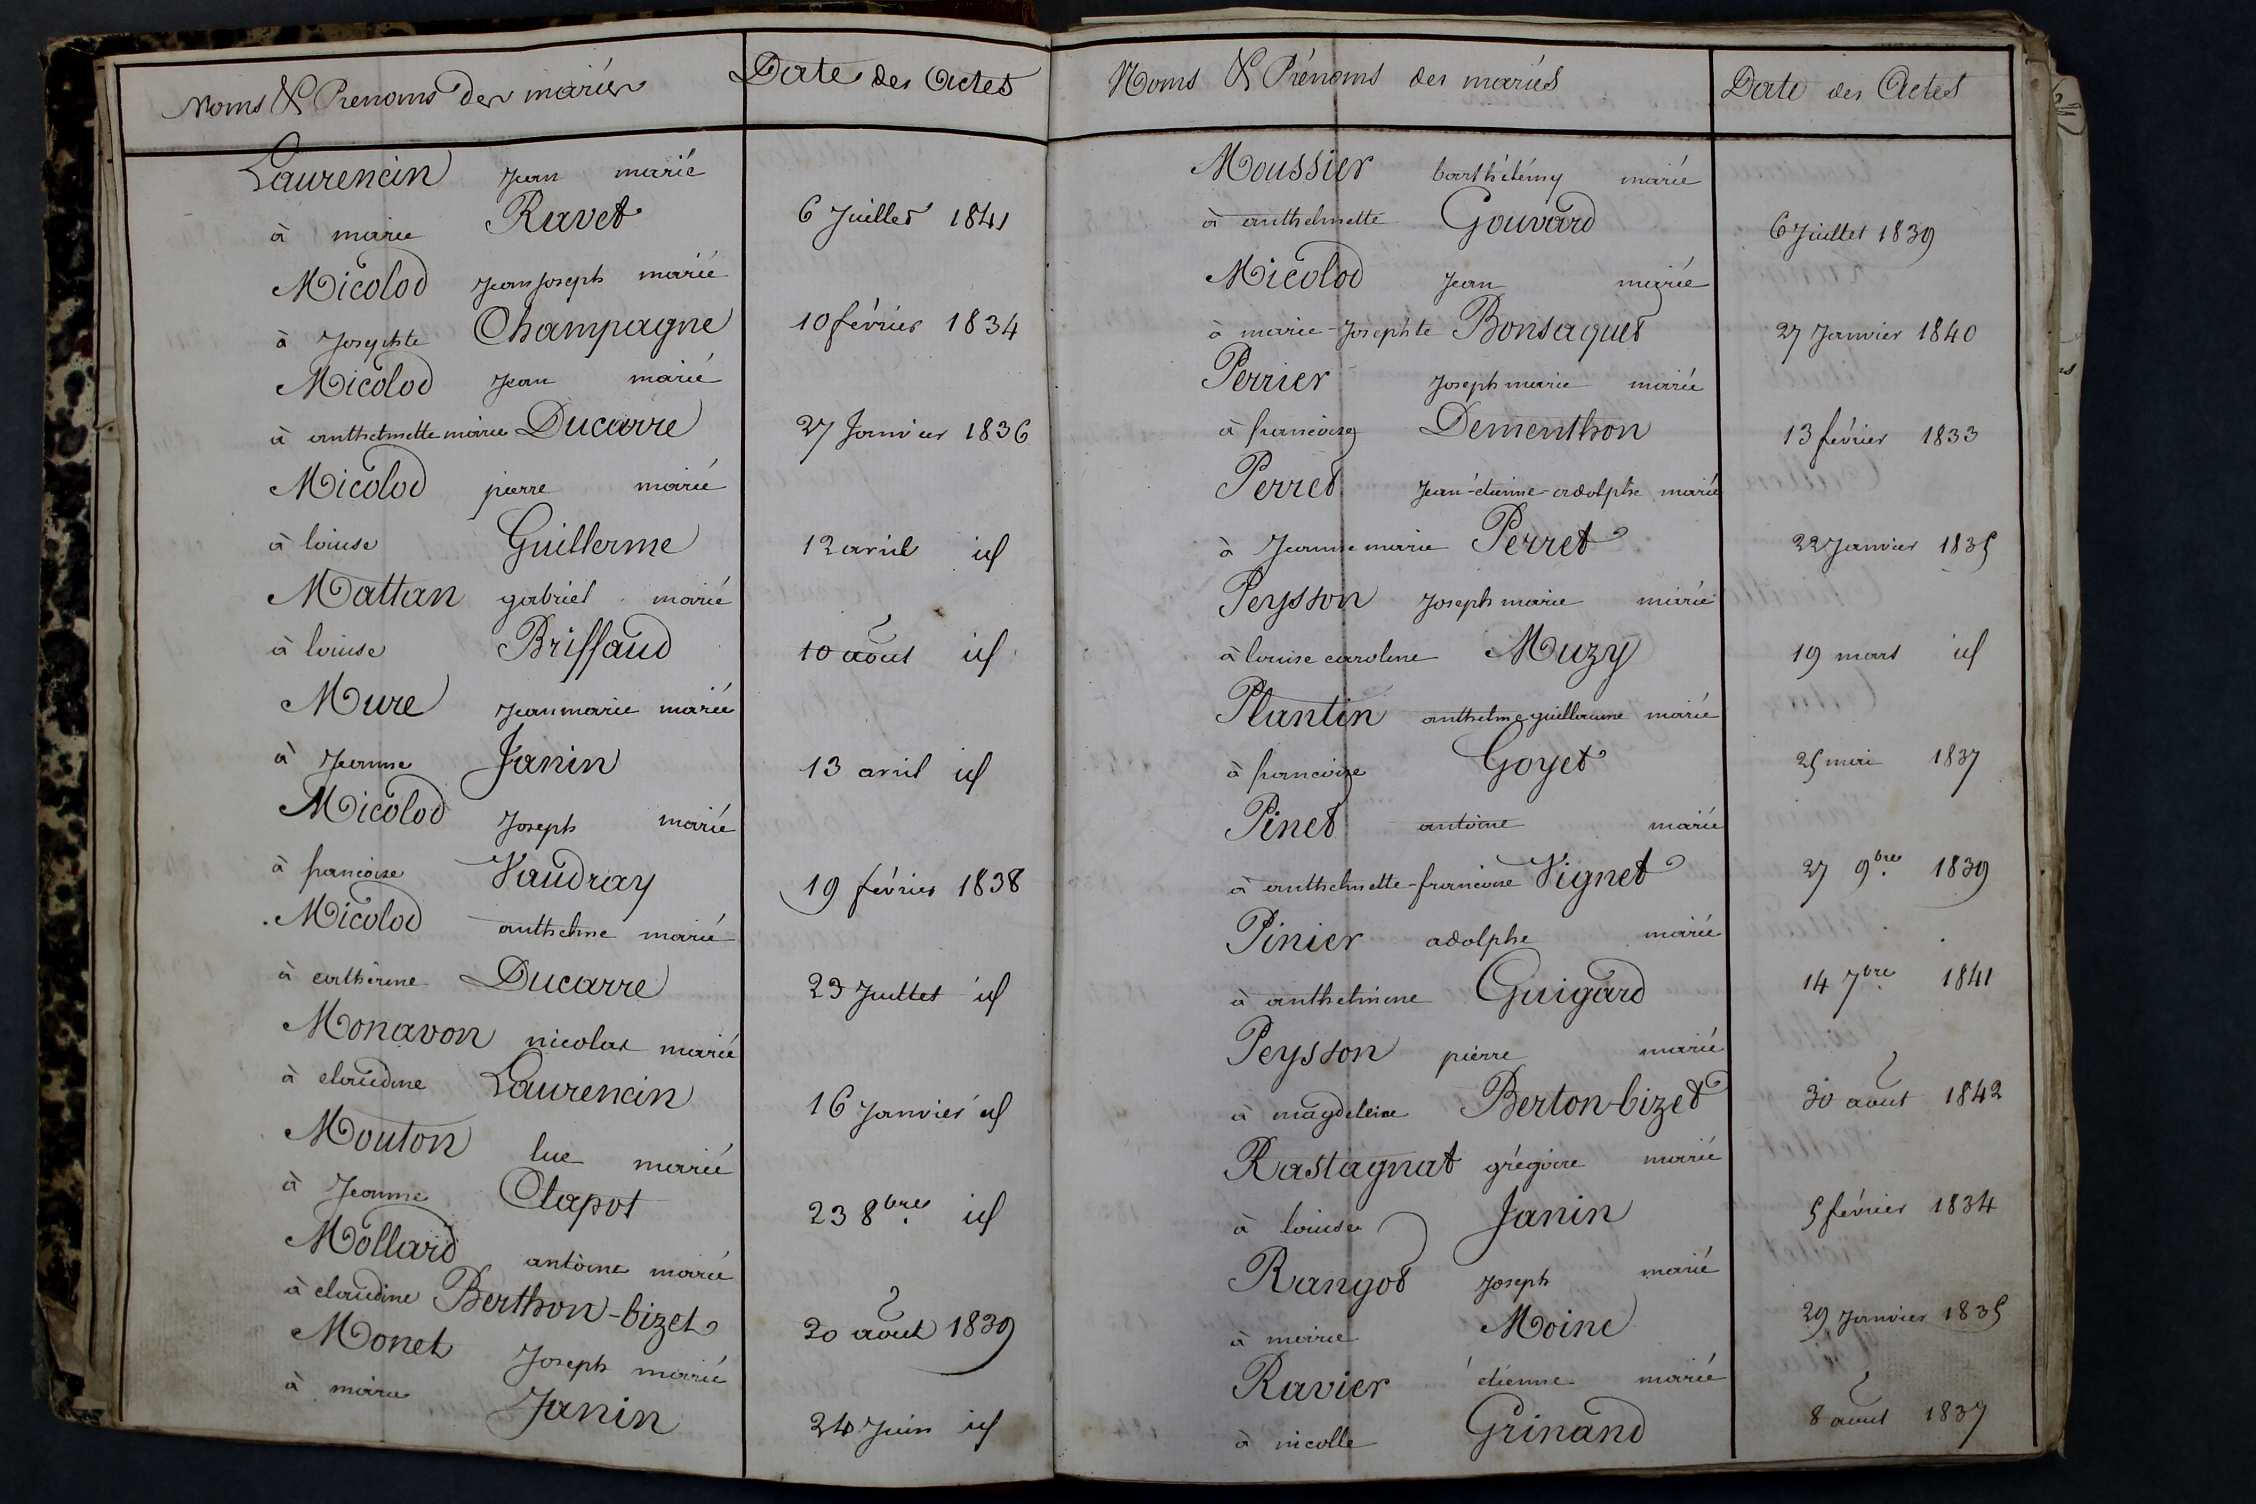 Noms & Prenoms des mariés Date des Actes
Laurencin Jean marié
à marie Ravet 6 Juillet 1841
Micolod Jean Joseph marié
à Josephte Champagne 10 février 1834
Micolod Jean marié
à anthelmette marie Ducarre 27 Janvier 1836
Micolod pierre marié
à louise Guillerme 12 avril id
Mattan gabriel marié
à louise Briffaud 10 août id
Mure Jean marie marié
à Jeanne Janin 13 avril id
Micolod Joseph marié
à francoise Vaudray 19 février 1838
Micolod anthelme marié
à catherine Ducarre 23 Juillet id
Monavon nicolas marié
à claudine Laurencin 16 Janvier id
Mouton luc marié
à Jeanne Clapot 23 8bre id
Mollard antoine marié
à claudine Berthon-bizet 20 août 1839
Monet Joseph marié
à marie Janin 24 Juin id
Noms & Prénoms des mariés Date des Actes
Moussier barthélémy marié
à anthelmette Gouvard 6 Juillet 1839
Micolod Jean marié
à marie-Josephte Bonsaquet 27 Janvier 1840
Perrier Joseph marie marié
à francoise Dementhon 13 février 1833
Perret Jean-étienne-adolphe marié
à Jeanne marie Perret 22 Janvier 1835
Peysson Joseph marie marié
à louise caroline Muzy 19 mars id
Plantin anthelme guillaume marié
à francoise Goyet 25 mai 1837
Pinet antoine marié
à anthelmette-francoise Vignet 27 9bre 1839
Pinier adolphe marié
à anthelmine Guigard 14 7bre 1841
Peysson pierre marié
à magdeleine Berton-bizet 30 août 1842
Rastagnat grégoire marié
à louise Janin 5 février 1834
Rangod Joseph marié
à marie Moine 29 Janvier 1835
Ravier étienne marié
à nicolle Grinand 8 août 1837